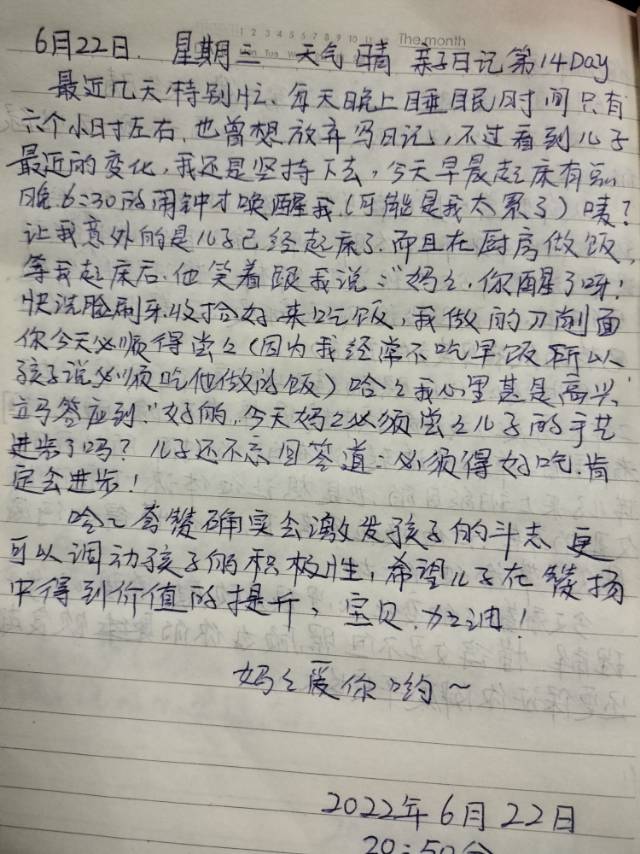 The month
6月22日. 星期三 天气晴 亲子日记第14Day
最近几天特别忙、每天晚上睡眠时间只有
六个小时左右、也曾想放弃写日记，不过看到儿子
最近的变化，我还是坚持下去，今天早晨起床有点
晚.6:30的闹钟才唤醒我(可能是我太累了)噗?
让我意外的是儿子已经起床了.而且在厨房做饭，
等我起床后.他笑着跟我说:"妈々.你醒了呀!
快洗脸刷牙.收拾好来吃饭，我做的刀削面
你今天必须得尝々(因为我经常不吃早饭所以
孩子说必须吃他做的饭)哈々我心里甚是高兴
立马答应到:"好的.今天妈々必须尝々儿子的手艺
进步了吗? 儿子还不忘回答道:必须得好吃.肯
定会进步!
哈々夸赞确实会激发孩子的斗志更
可以调动孩子的积极性，希望儿子在赞扬
中得到价值的提升，宝贝.加油!
妈々爱你哟~
2022年6月22日
20:50分